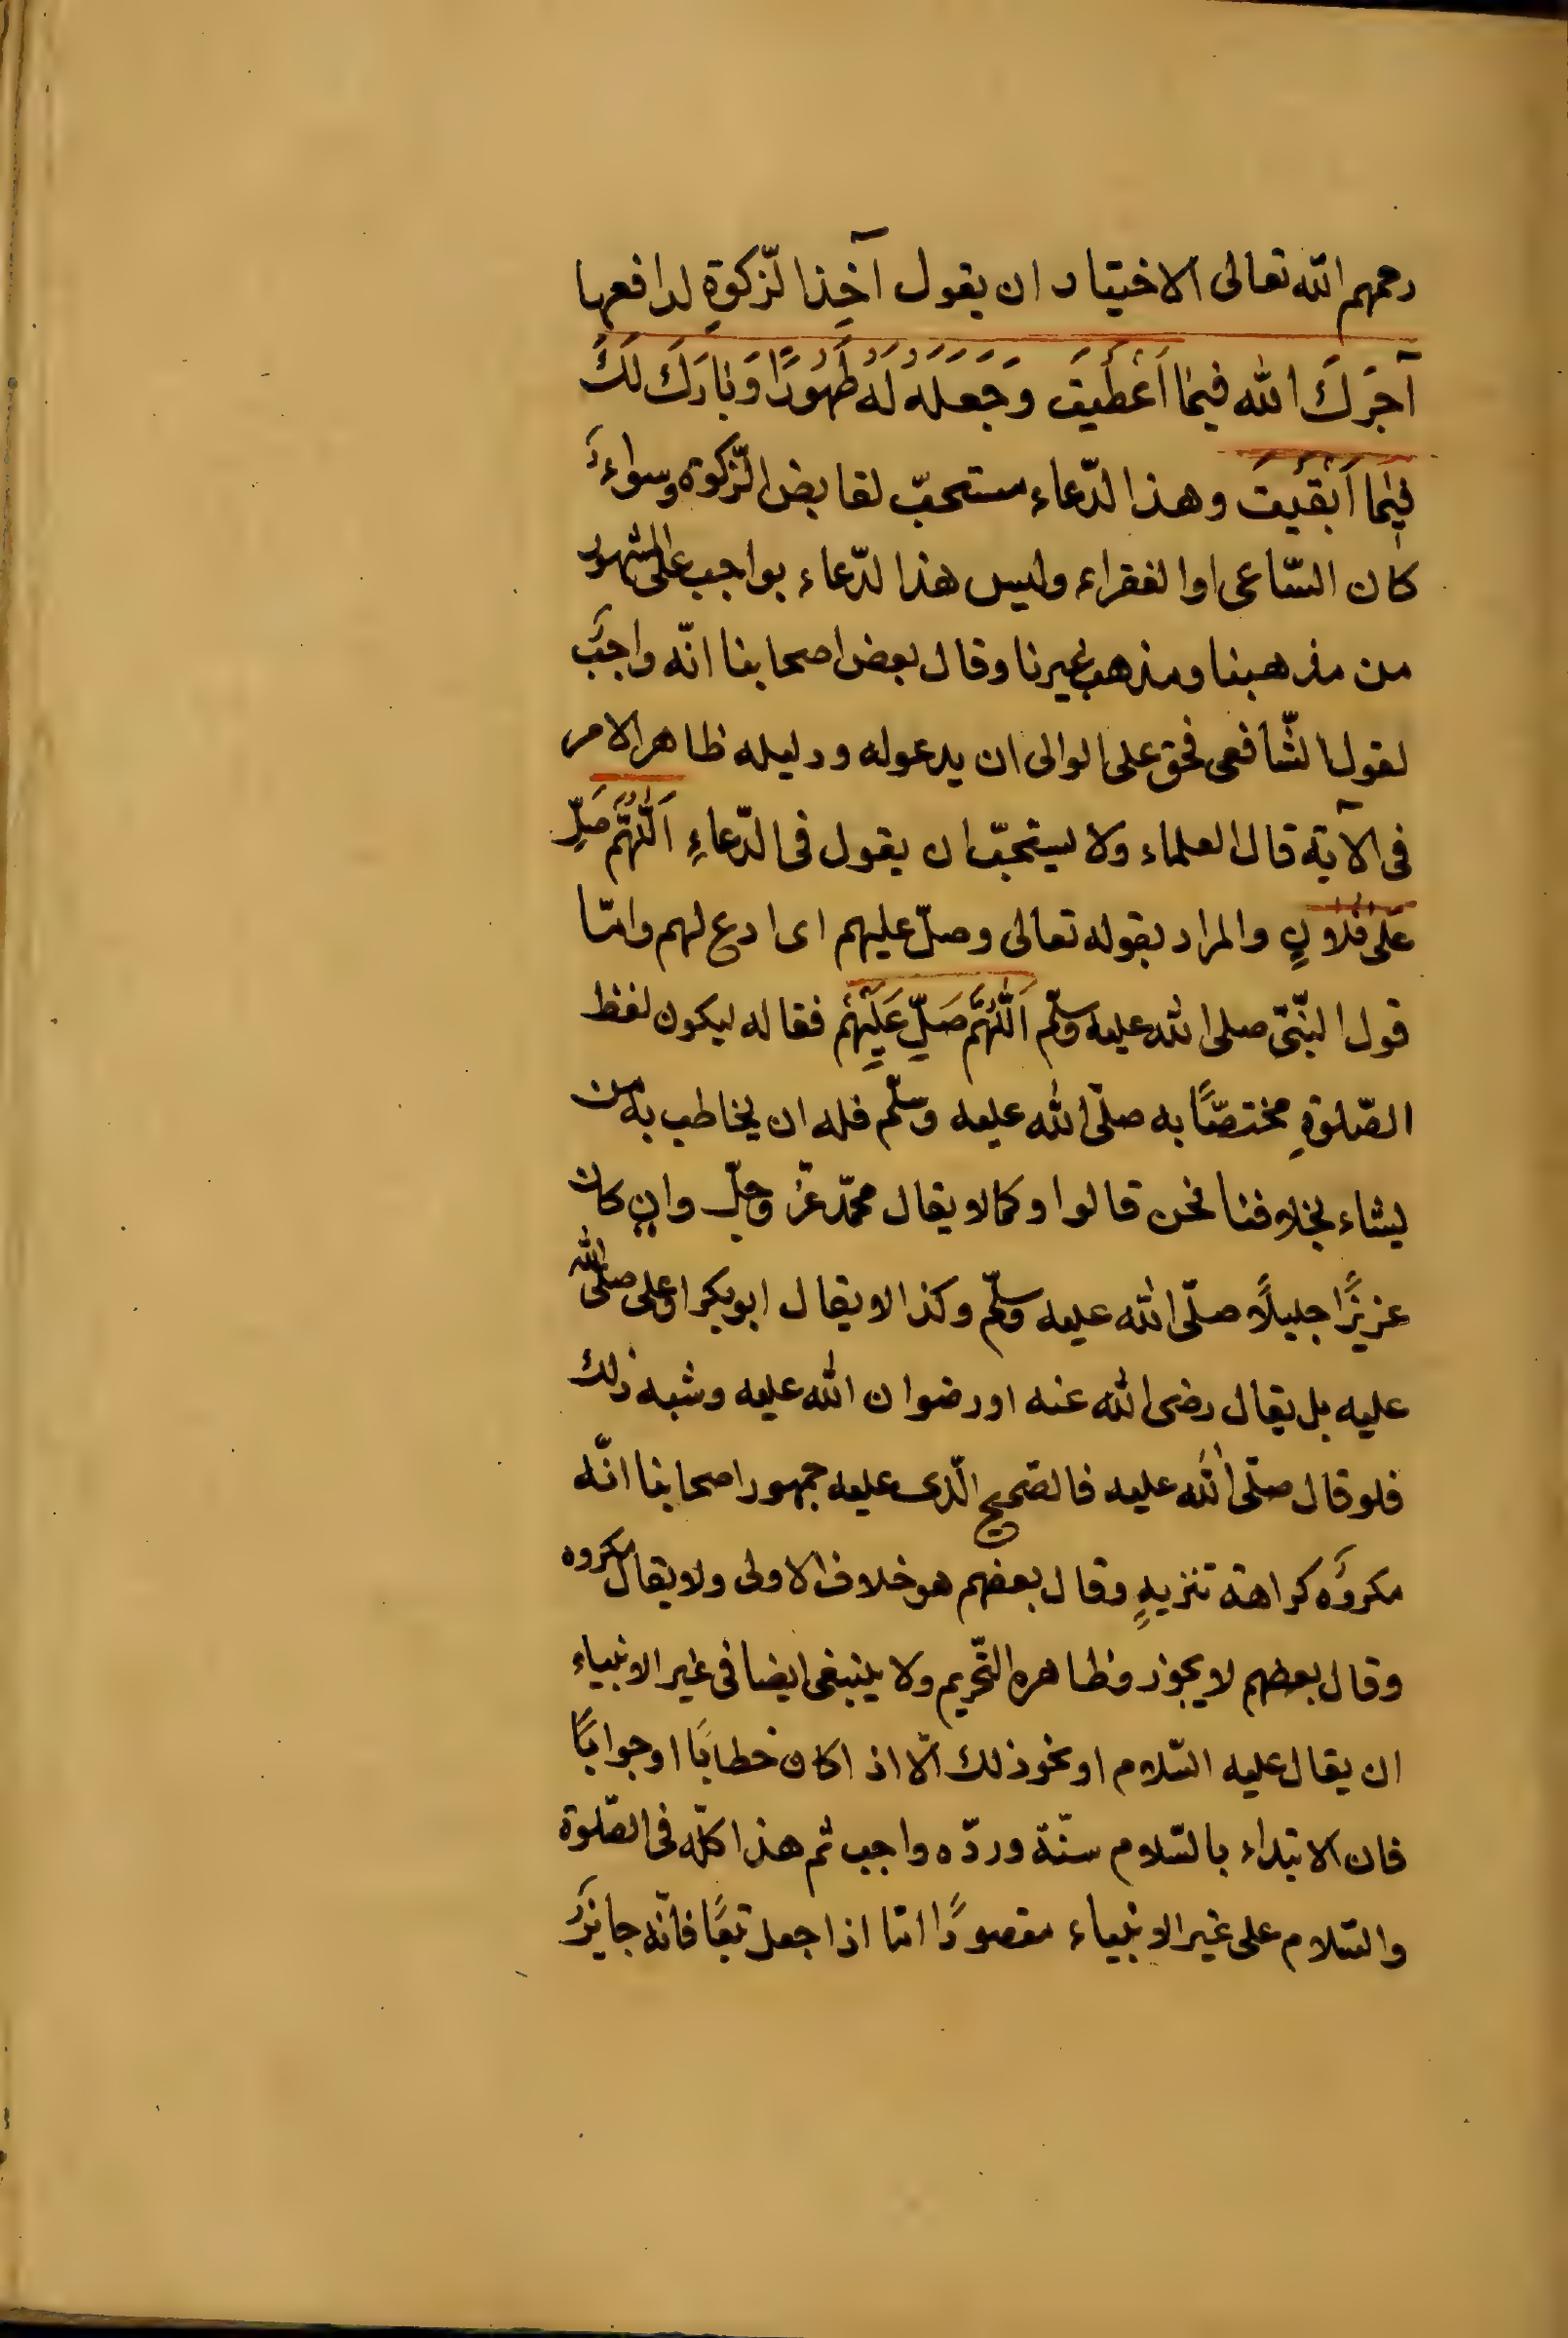 رحمهم الله تعالى الاختيار ان يقول آخِذ الزّكوةِ لدافعها
آجَرَكَ الله فيمَا اَعْطَيتَ وَجَعَلَهُ لَهُ طَهُورًا وَبَارَكَ لَكَ
فِيمَا اَبْقَيْتَ وهذا الدّعاء مستحبّ لقابض الزّكوة وسواءٌ
كان السّاعى او الفقراء وليس هذا الدّعاء بواجب على المشهور
من مذهبنا ومذهب غيرنا وقال بعض اصحابنا انّه واجبٌ
لقول الشّافعى فحق على الوالى ان يدعوله ودليله ظاهر الامر
فى الآية قال العلماء ولا يستحبّ ان يقول فى الدّعاءِ اَللّٰهُمَّ صَلِّ
عَلى فُلَانٍ والمراد بقوله تعالى وصلّ عليهم اى ادع لهم وامّا
قول النّبىّ صلى الله عليه وسلّم اَللّٰهُمَّ صَلِّ عَلَيْهِم فقاله ليكون لفظ
الصّلوةِ مختصًّا به صلّى الله عليه وسلّم فله ان يخاطب به من
يشاء بخلافنا نحن قالوا وكما لا يقال محمّد عزّ وجلّ وان كان
عزيزًا جليلًا صلّى الله عليه وسلّم وكذا لا يقال ابو بكر او على صلّى الله
عليه بل يقال رضى الله عنه او رضوان الله عليه وشبه ذلك
فلو قال صلّى الله عليه فالصّحيح الّذى عليه جمهور اصحابنا انّه
مكروٌه كراهة تنزيهٍ وقال بعضهم هو خلاف الاولى ولا يقال مكروه
وقال بعضهم لا يجوز وظاهره التّحريم ولا ينبغى ايضا فى غير الانبياء
ان يقال عليه السّلام او نحو ذلك الّا اذا كان خطابًا او جوابًا
فان الابتداء بالسّلام سنّة وردّه واجب ثم هذا كلّه فى الصّلوة
والسّلام على غير الانبياء مقصودًا امّا اذا جعل تبعًا فانّه جايزٌ